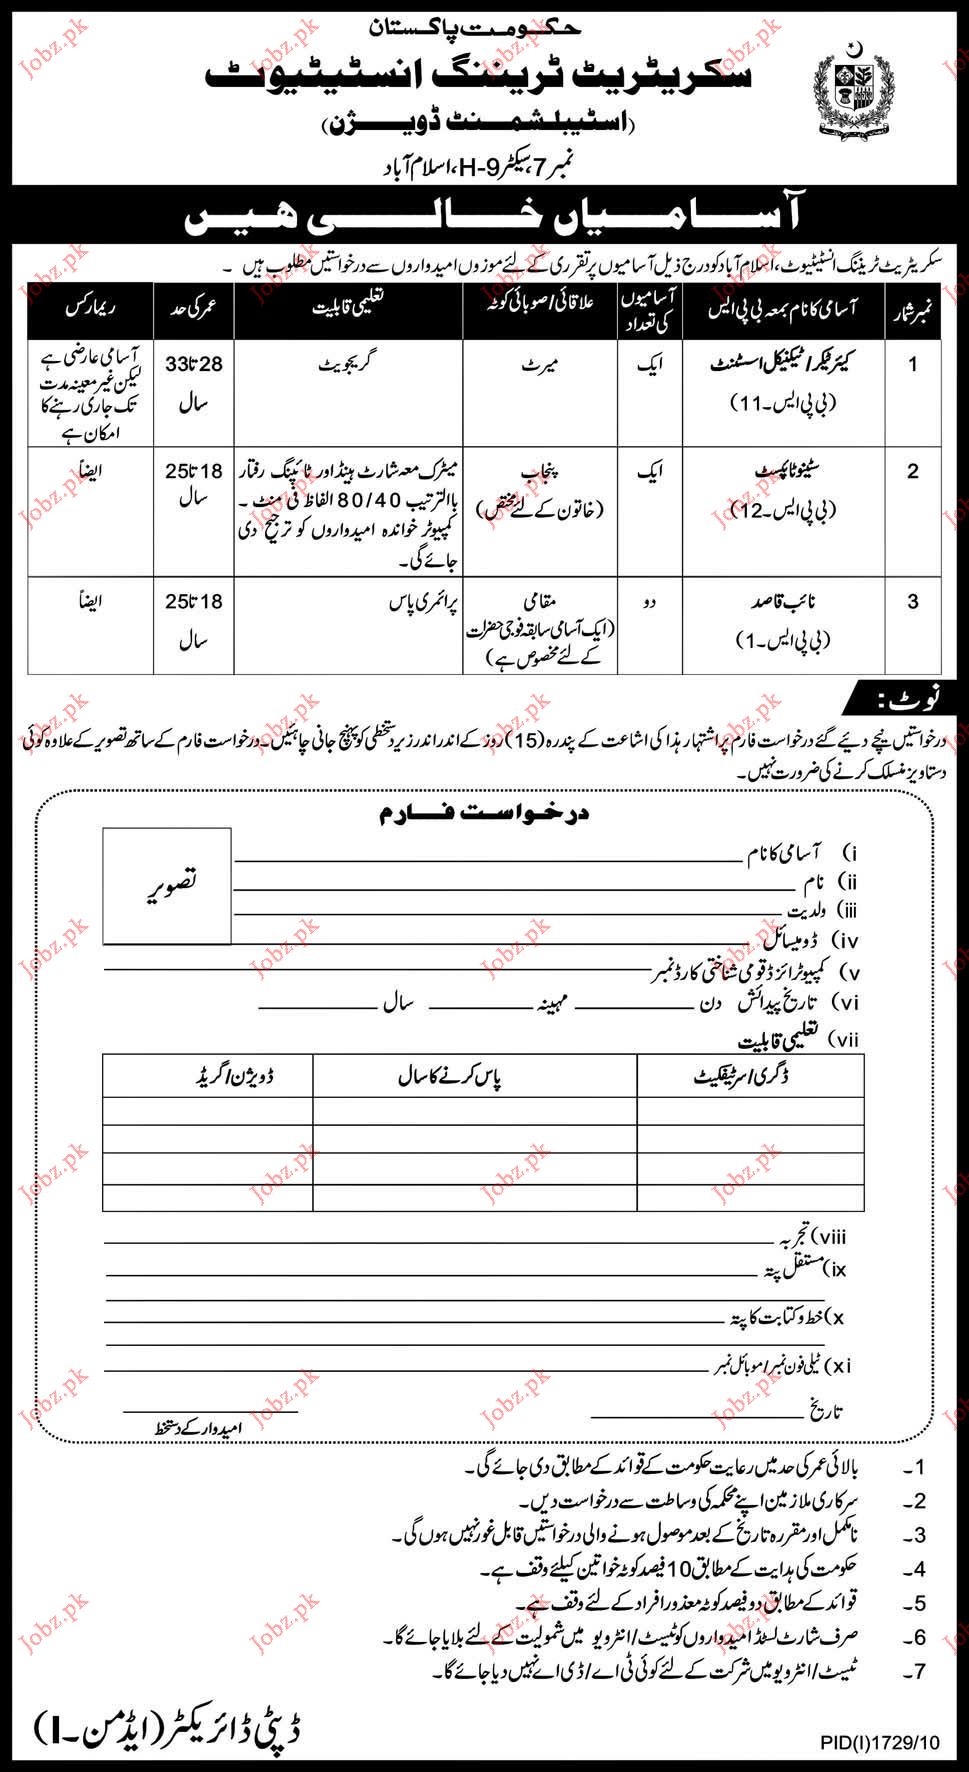 حکومت پاکستان
سکریٹریٹ ٹریننگ انسٹیٹیوٹ
(اسٹیبلشمنٹ ڈویژن)
نمبر 7، سیکٹر H-9، اسلام آباد
آسامیاں خالی ہیں
سکریٹریٹ ٹریننگ انسٹیٹیوٹ، اسلام آباد کو درج ذیل آسامیوں پر تقرری کے لئے موزوں امیدواروں سے درخواستیں مطلوب ہیں ۔
نمبر شمار | آسامی کا نام بمعہ بی پی ایس | آسامیوں کی تعداد | علاقائی/صوبائی کوٹہ | تعلیمی قابلیت | عمر کی حد | ریمارکس
1 | کیئر ٹیکر/ٹیکنیکل اسسٹنٹ (بی پی ایس۔11) | ایک | میرٹ | گریجویٹ | 28 تا 33 سال | آسامی عارضی ہے لیکن غیر معینہ مدت تک جاری رہنے کا امکان ہے
2 | سٹینو ٹائپسٹ (بی پی ایس۔12) | ایک | پنجاب (خاتون کے لئے مختص) | میٹرک معہ شارٹ ہینڈ اور ٹائپنگ رفتار باالترتیب 80/40 الفاظ فی منٹ ۔ کمپیوٹر خواندہ امیدواروں کو ترجیح دی جائے گی۔ | 18 تا 25 سال | ایضاً
3 | نائب قاصد (بی پی ایس۔1) | دو | مقامی (ایک آسامی سابقہ فوجی حضرات کے لئے مخصوص ہے) | پرائمری پاس | 18 تا 25 سال | ایضاً
نوٹ:
درخواستیں نیچے دیئے گئے درخواست فارم پر اشتہار ہذا کی اشاعت کے پندرہ (15) روز کے اندر اندر زیر دستخطی کو پہنچ جانی چاہئیں۔ درخواست فارم کے ساتھ تصویر کے علاوہ کوئی
دستاویز منسلک کرنے کی ضرورت نہیں۔
درخواست فارم
تصویر
i) آسامی کا نام
ii) نام
iii) ولدیت
iv) ڈومیسائل
v) کمپیوٹرائزڈ قومی شناختی کارڈ نمبر
vi) تاریخ پیدائش دن مہینہ سال
vii) تعلیمی قابلیت
ڈگری/سرٹیفکیٹ | پاس کرنے کا سال | ڈویژن/گریڈ
viii) تجربہ
ix) مستقل پتہ
x) خط و کتابت کا پتہ
xi) ٹیلی فون نمبر/موبائل نمبر
تاریخ
امیدوار کے دستخط
1۔ بالائی عمر کی حد میں رعایت حکومت کے قوائد کے مطابق دی جائے گی۔
2۔ سرکاری ملازمین اپنے محکمہ کی وساطت سے درخواست دیں۔
3۔ نامکمل اور مقررہ تاریخ کے بعد موصول ہونے والی درخواستیں قابل غور نہیں ہوں گی۔
4۔ حکومت کی ہدایت کے مطابق 10 فیصد کوٹہ خواتین کیلئے وقف ہے۔
5۔ قوائد کے مطابق دو فیصد کوٹہ معذور افراد کے لئے وقف ہے۔
6۔ صرف شارٹ لسٹڈ امیدواروں کو ٹیسٹ/انٹرویو میں شمولیت کے لئے بلایا جائے گا۔
7۔ ٹیسٹ/انٹرویو میں شرکت کے لئے کوئی ٹی اے/ڈی اے نہیں دیا جائے گا۔
ڈپٹی ڈائریکٹر (ایڈمن۔I)
PID(I)1729/10
Jobz.pk